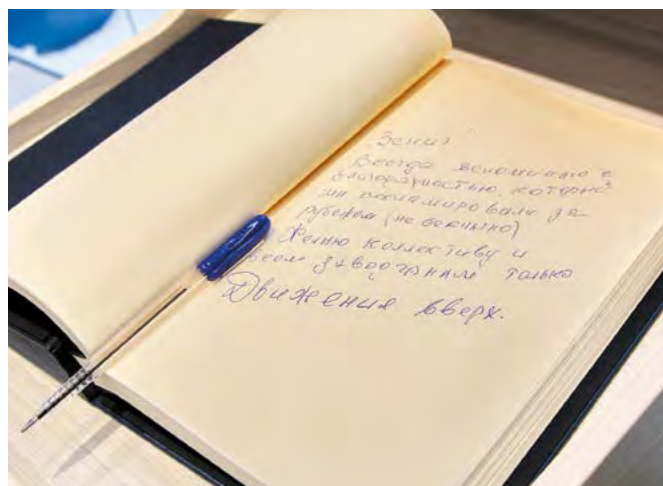 Зенит
Всегда вспоминаю с
благодарностью, который
мы рекламировали за
рубежом (не бесплатно)
Желаю коллективу и
всем заводчанам только
Движения вверх.